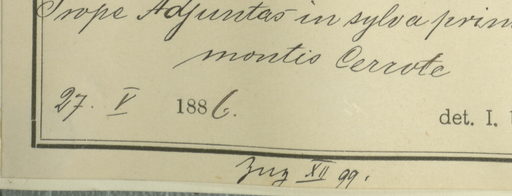 Prope Adjuntas in sylva prim
montis Cerrote
27. V 1886.
det. I. U
XII 99.